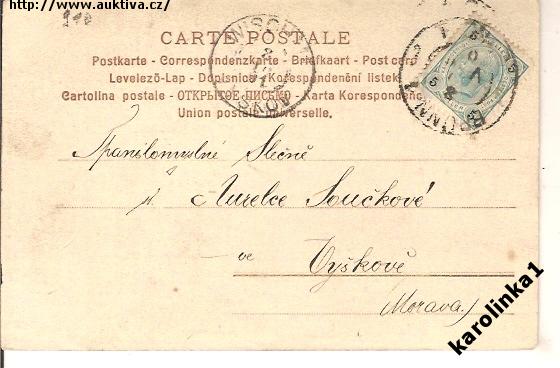 http://www.auktiva.cz/
CARTE POSTALE
Postkarte - Correspondenzkarte - Briefkaart - Post card
Levelező-Lap - Dopisnice - Korespondenční lístek
Cartolina postale - ОТКРЫТОЕ ПИСЬМО - Karta Korespondenc
Union postale universelle.
WISCHAU
VYŠKOV
Slečně
Aurelce Součkové
ve
Vyškově
(Morava.)
karolinka1